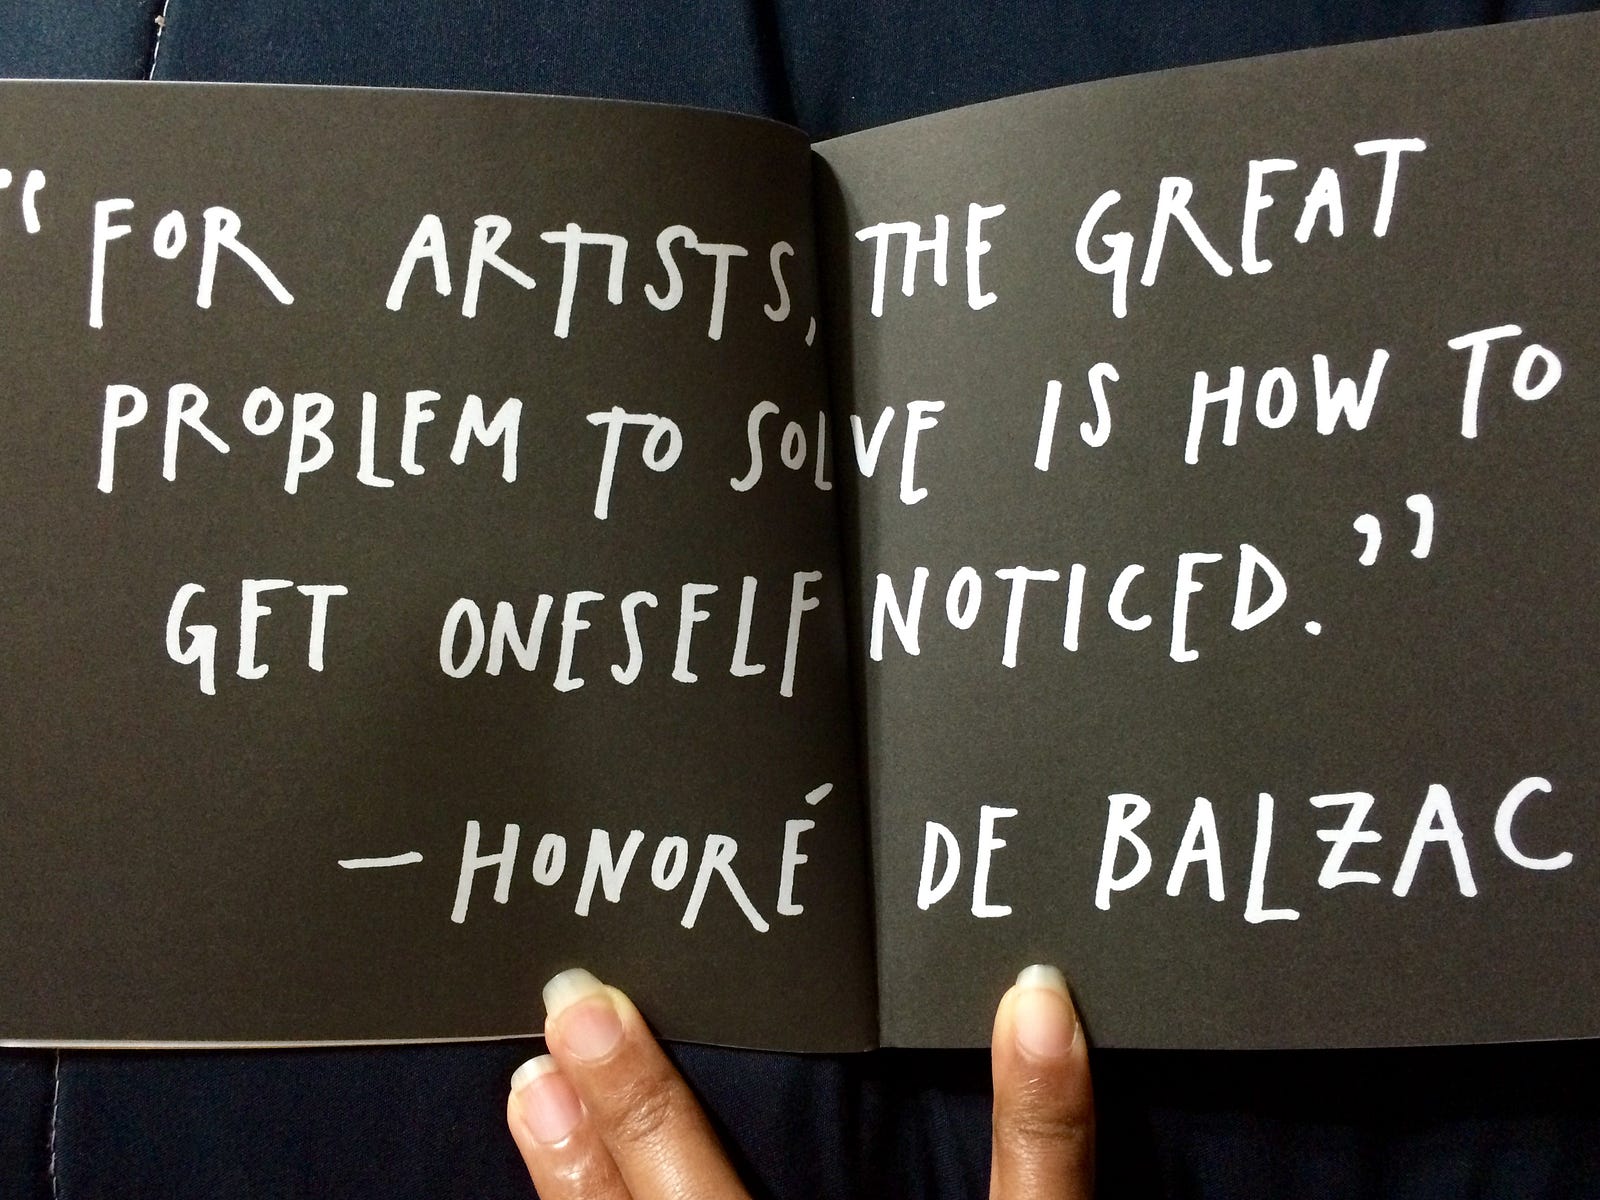 “FOR ARTISTS, THE GREAT
PROBLEM TO SOLVE IS HOW TO
GET ONESELF NOTICED.”
—HONORÉ DE BALZAC